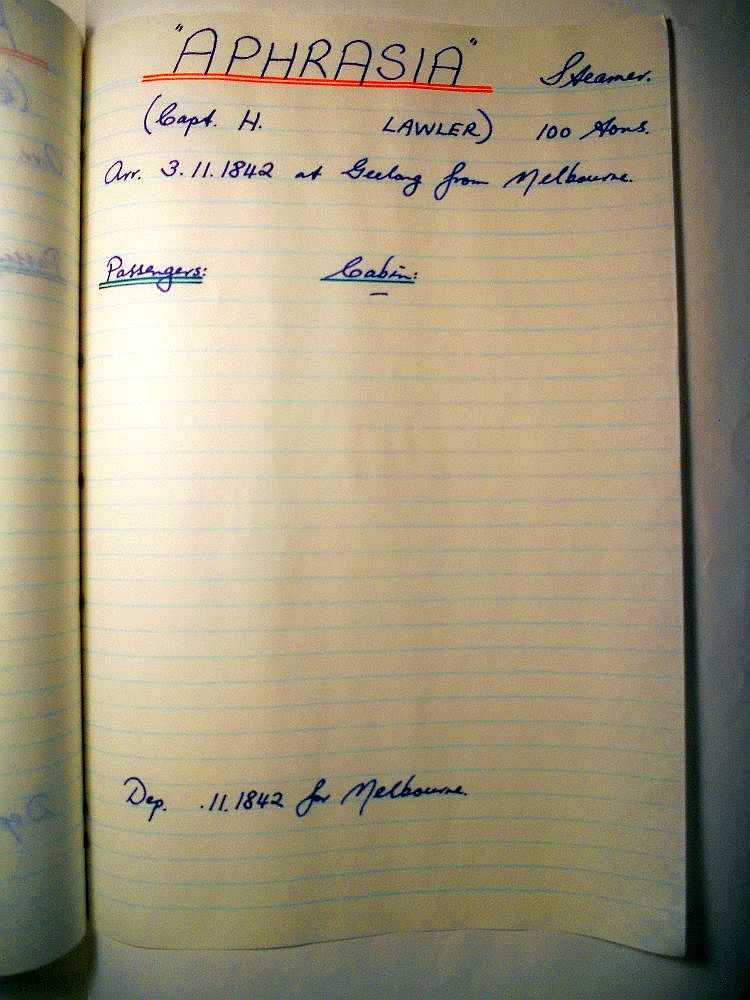 "APHRASIA" Steamer.
(Capt. H. LAWLER) 100 tons.
Arr. 3.11.1842 at Geelong from Melbourne.
Passengers: Cabin:
–
Dep. .11.1842 for Melbourne.